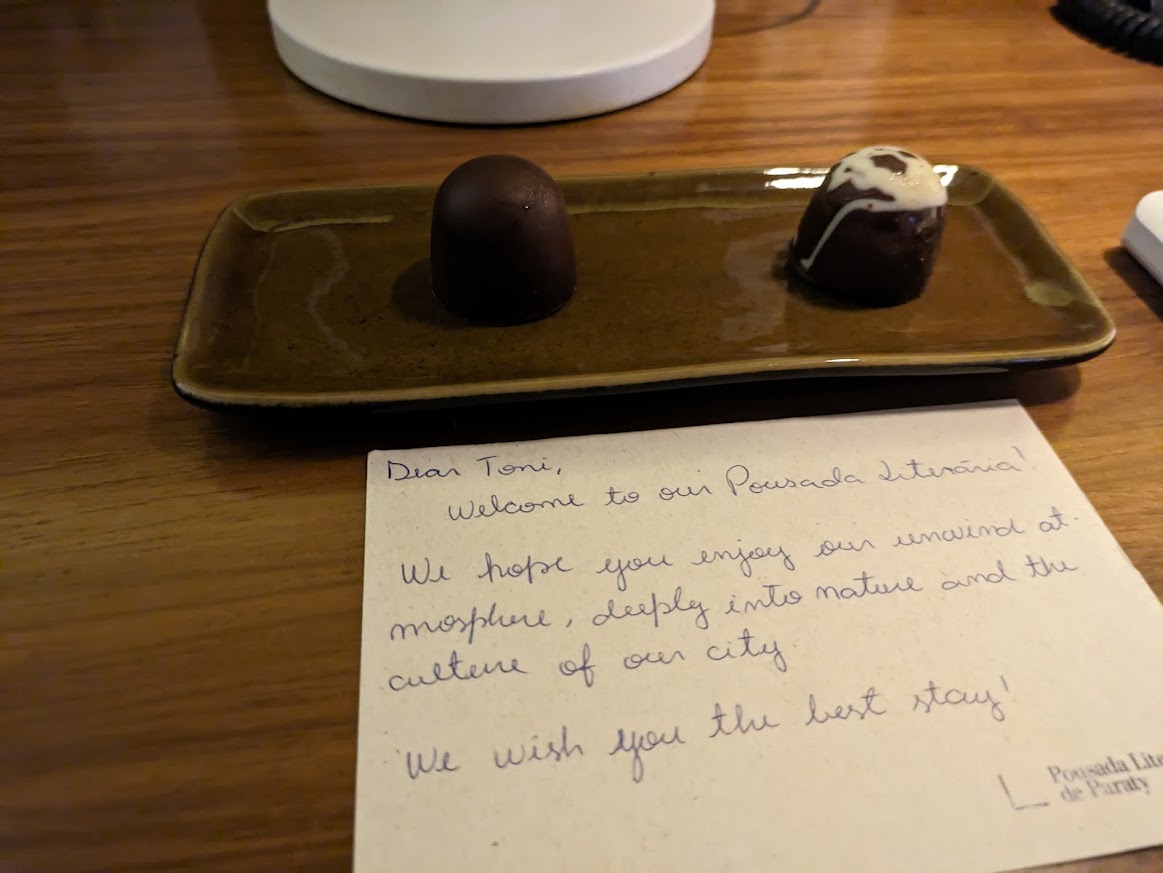 Dear Toni,
Welcome to our Pousada Literária!
We hope you enjoy our unwind at-
mosphere, deeply into nature and the
culture of our city
We wish you the best stay!
Pousada Lite
de Paraty